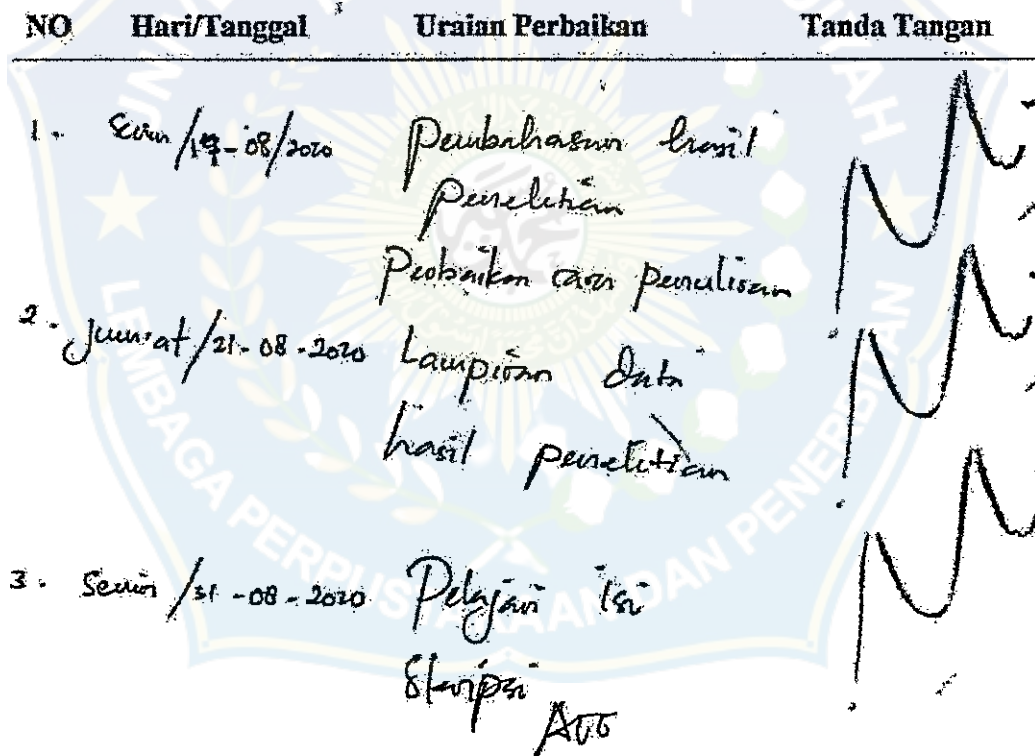 NO Hari/Tanggal Uraian Perbaikan Tanda Tangan
1. Senin /17-08/2020 Pembahasan hasil
penelitian
Perbaikan cara penulisan
2. Jum'at /21-08-2020 Lampiran data
hasil penelitian
3. Senin /31-08-2020 Pelajari isi
Skripsi
ACC
LEMBAGA PERPUSTAKAAN DAN PENERBITAN